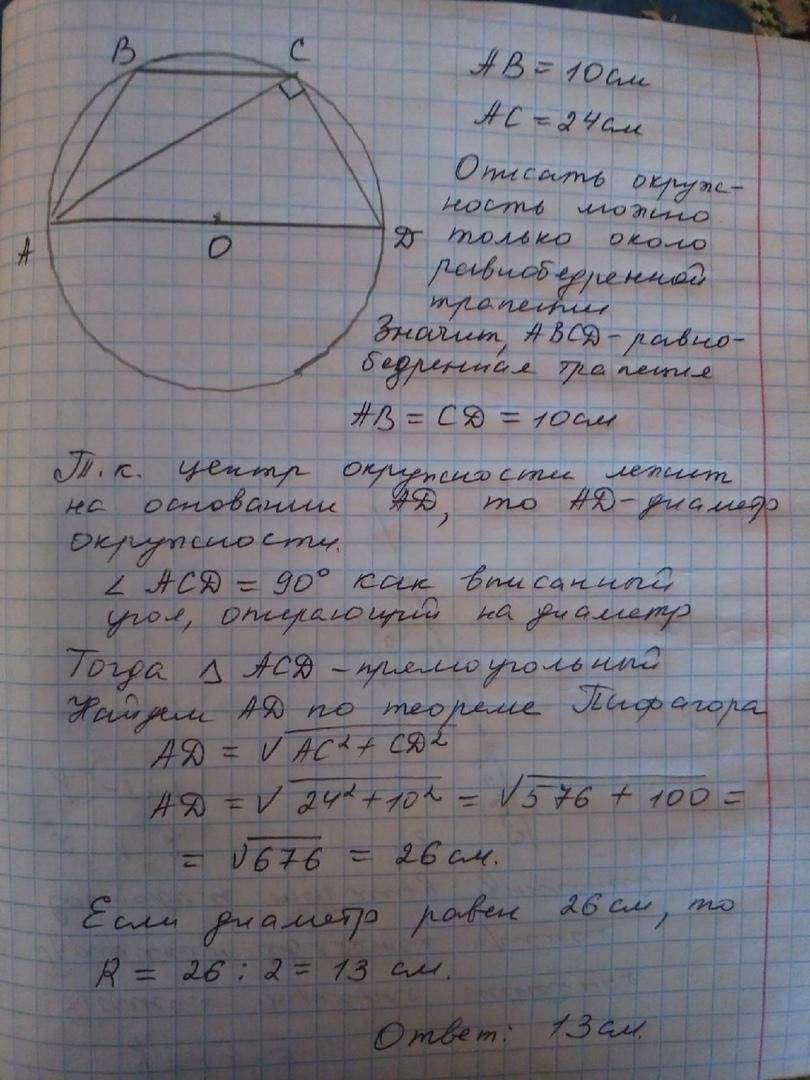 B C
A O D
AB = 10см
AC = 24см
Описать окруж-
ность можно
только около
равнобедренной
трапеции
Значит, ABCD - равно-
бедренная трапеция
AB = CD = 10см
Т.к. центр окружности лежит
на основании AD, то AD - диаметр
окружности.
∠ ACD = 90° как вписанный
угол, опирающий на диаметр
Тогда △ ACD - прямоугольный
Найдем AD по теореме Пифагора
AD = √AC² + CD²
AD = √24² + 10² = √576 + 100 =
= √676 = 26см.
Если диаметр равен 26см, то
R = 26 : 2 = 13 см.
Ответ: 13см.